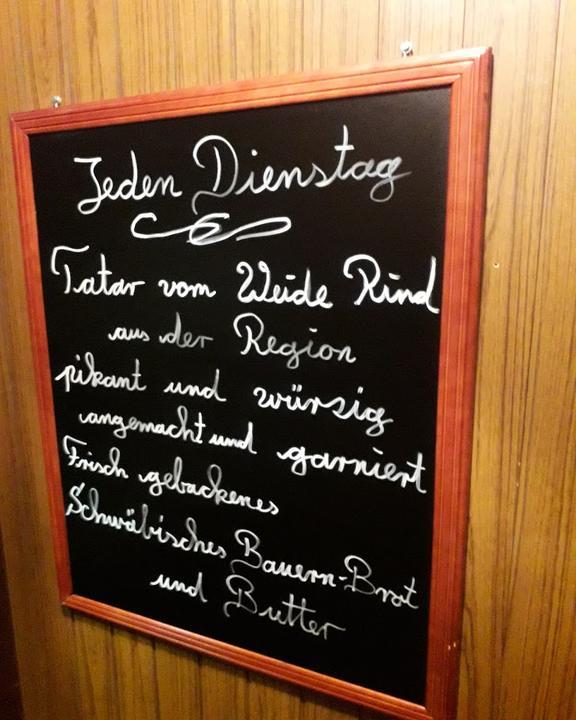 Jeden Dienstag
Tatar vom Weide Rind
aus der Region
pikant und würzig
angemacht und garniert
Frisch gebackenes
Schwäbisches Bauern-Brot
und Butter